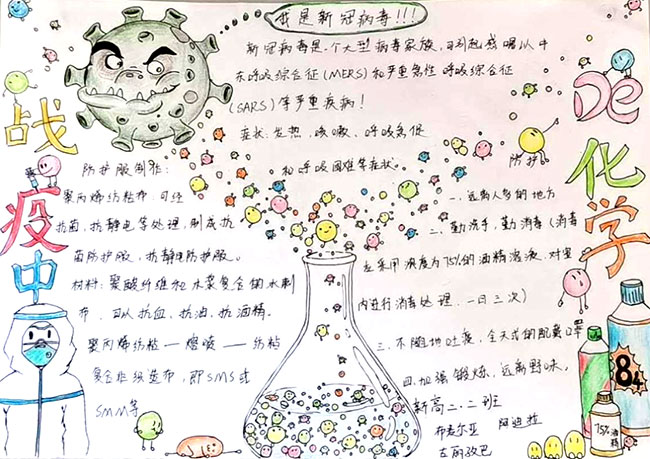 我是新冠病毒!!!
新冠病毒是一个大型病毒家族,可引起感冒以中
东呼吸综合征(MERS)和严重急性呼吸综合征
(SARS)等严重疾病!
症状:发热、咳嗽、呼吸急促
和呼吸困难等症状。
战
疫
中
De
化
学
防护服制作:
聚丙烯纺粘布,可经
抗菌,抗静电等处理,制成抗
菌防护服,抗静电防护服。
材料:聚酯纤维和木浆复合的水刺
布,可以抗血,抗油,抗酒精。
聚丙烯纺粘—熔喷—纺粘
复合非织造布,即SMS或
SMM等
防护
一、远离人多的地方
二、勤洗手,勤消毒(消毒
应采用浓度为75%的酒精溶液,对室
内进行消毒处理,一日三次)
三、不随地吐痰,全天式的配戴口罩
四、加强锻炼,远离野味。
新高二.二班
布麦尔亚 阿迪拉
古丽孜巴
84
75%
酒精